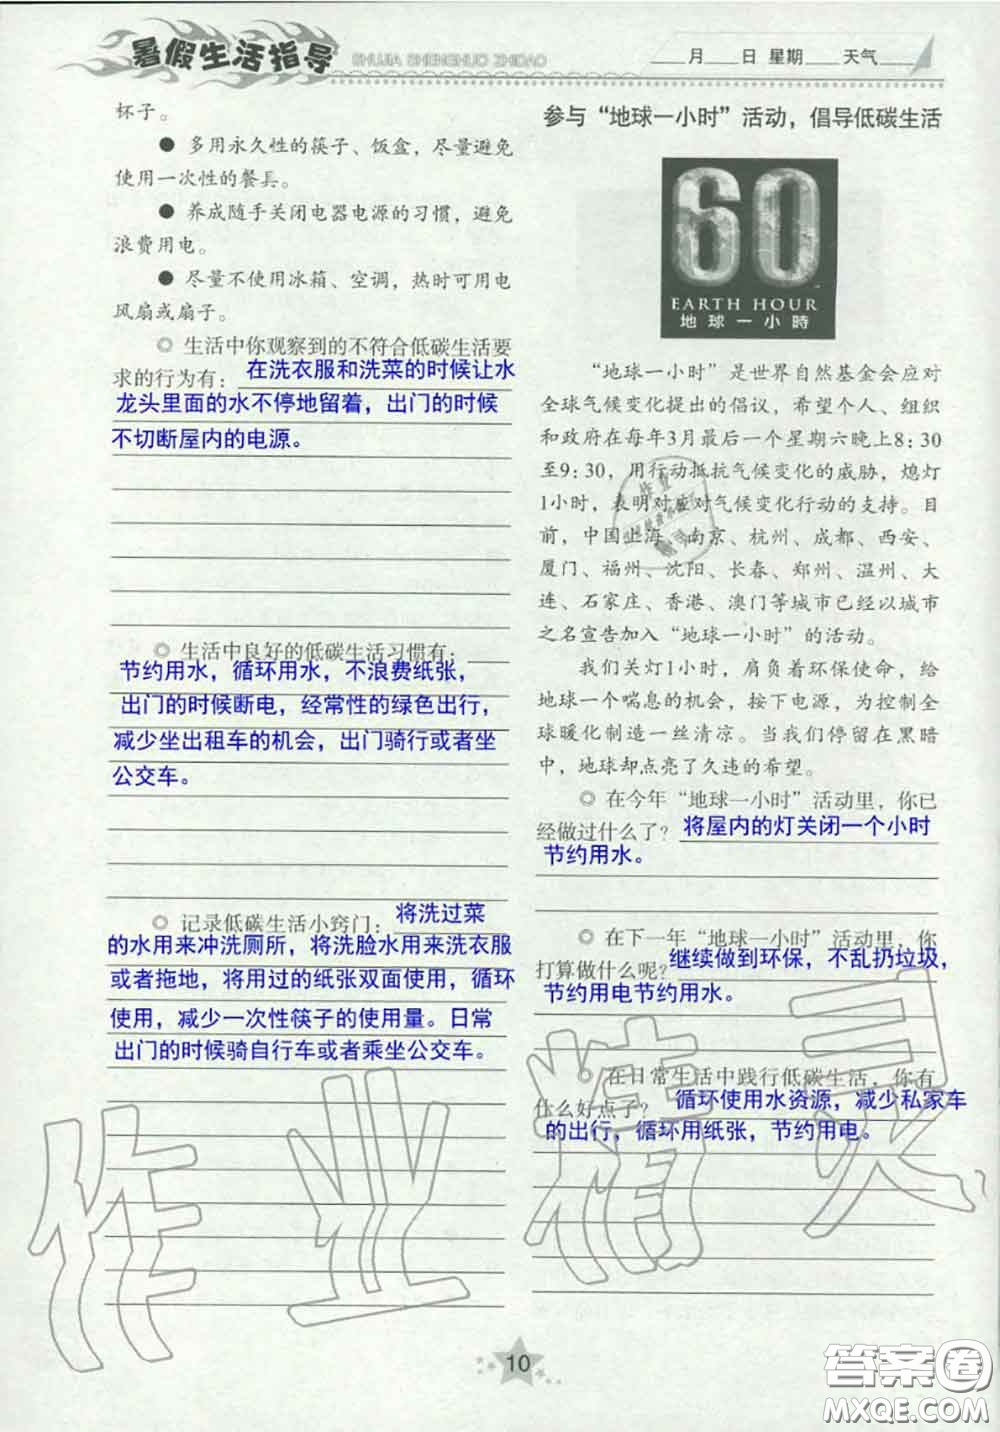 暑假生活指导
SHUJIA SHENGHUO ZHIDAO
月 日 星期 天气
杯子。
● 多用永久性的筷子、饭盒，尽量避免
使用一次性的餐具。
● 养成随手关闭电器电源的习惯，避免
浪费用电。
● 尽量不使用冰箱、空调，热时可用电
风扇或扇子。
◎ 生活中你观察到的不符合低碳生活要
求的行为有：在洗衣服和洗菜的时候让水
龙头里面的水不停地留着，出门的时候
不切断屋内的电源。
◎ 生活中良好的低碳生活习惯有：
节约用水，循环用水，不浪费纸张，
出门的时候断电，经常性的绿色出行，
减少坐出租车的机会，出门骑行或者坐
公交车。
◎ 记录低碳生活小窍门：将洗过菜
的水用来冲洗厕所，将洗脸水用来洗衣服
或者拖地，将用过的纸张双面使用，循环
使用，减少一次性筷子的使用量。日常
出门的时候骑自行车或者乘坐公交车。
参与“地球一小时”活动，倡导低碳生活
60
EARTH HOUR
地球一小時
“地球一小时”是世界自然基金会应对
全球气候变化提出的倡议，希望个人、组织
和政府在每年3月最后一个星期六晚上8:30
至9:30，用行动抵抗气候变化的威胁，熄灯
1小时，表明对应对气候变化行动的支持。目
前，中国上海、南京、杭州、成都、西安、
厦门、福州、沈阳、长春、郑州、温州、大
连、石家庄、香港、澳门等城市已经以城市
之名宣告加入“地球一小时”的活动。
我们关灯1小时，肩负着环保使命，给
地球一个喘息的机会，按下电源，为减少全
球暖化制造一丝清凉。当我们停留在黑暗
中，地球却点亮了久违的希望。
◎ 在今年“地球一小时”活动里，你已
经做过什么了？将屋内的灯关闭一个小时
节约用水。
◎ 在下一年“地球一小时”活动里，你
打算做什么呢？继续做到环保，不乱扔垃圾，
节约用电节约用水。
◎ 在日常生活中践行低碳生活，你有
什么好点子？循环使用水资源，减少私家车
的出行，循环用纸张，节约用电。
作业精灵
10
答案圈
MXQE.COM